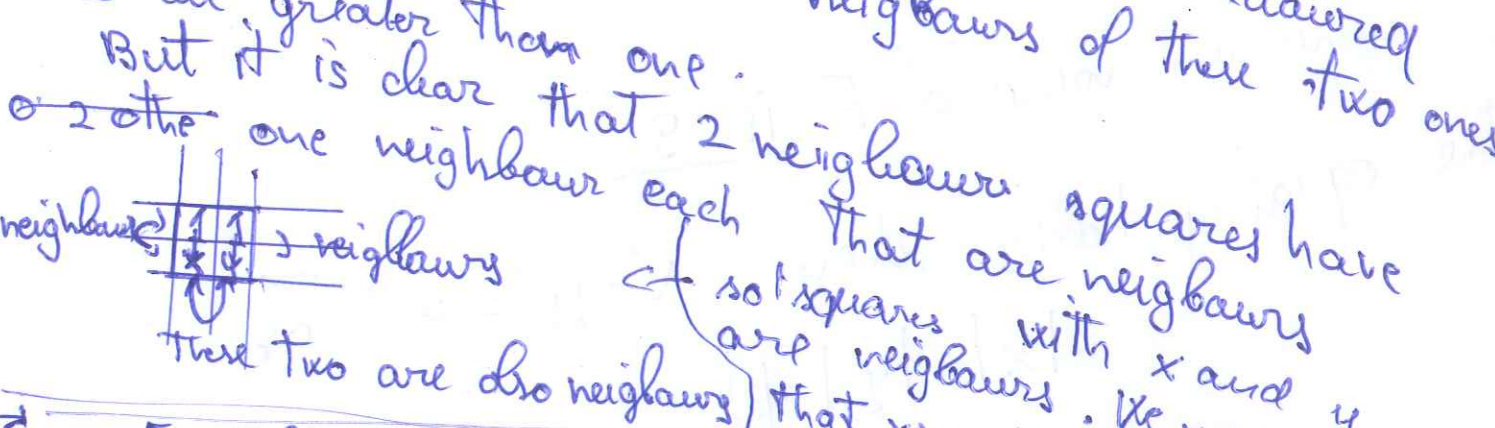 greater than one. neigbaurs of these two ones
But it is clear that 2 neigbaurs squares have
one neighbaur each that are neigbaurs
neighbaurs neigbaurs
so squares with x and y
are neigbaurs. We
These two are also neigbaurs) that